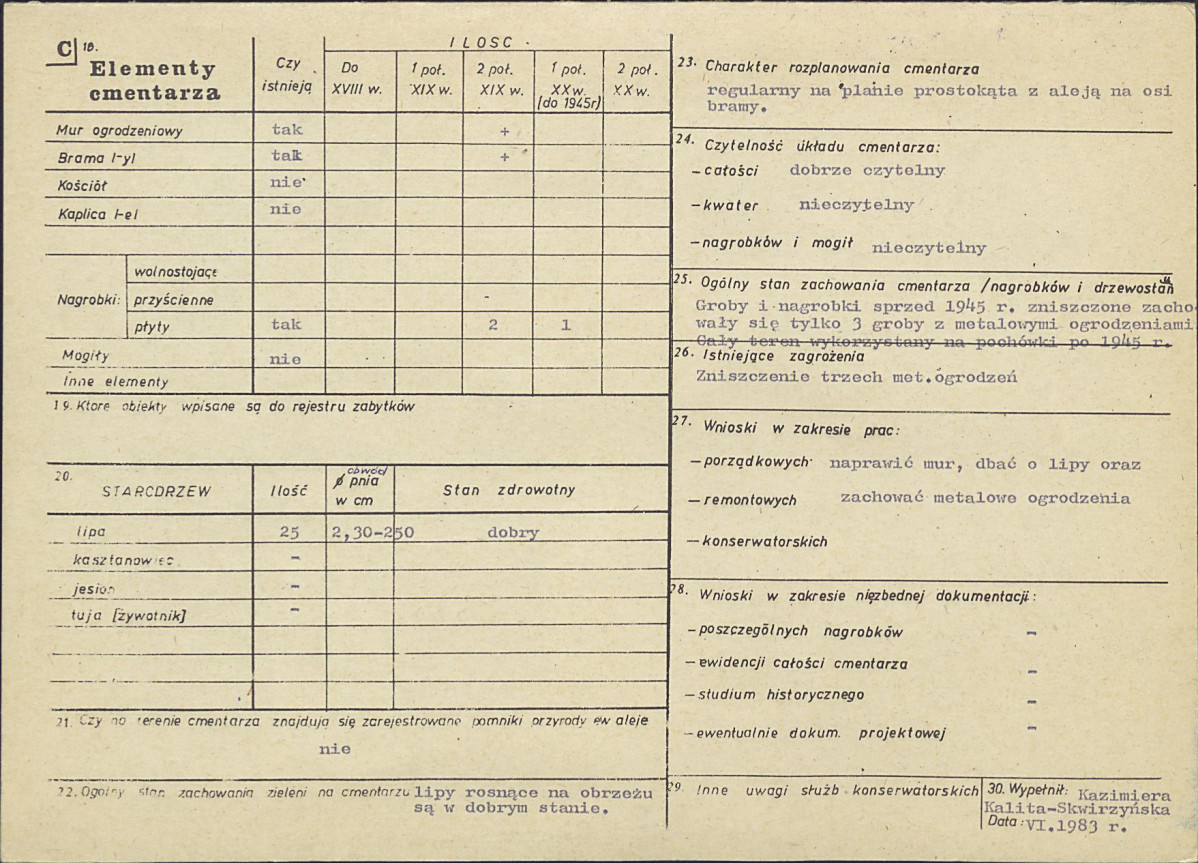 C 18.
Elementy cmentarza
Czy istnieją
ILOSC
Do XVIII w.
1 poł. XIX w.
2 poł. XIX w.
1 poł. XX w. [do 1945r]
2 poł. XX w.
Mur ogrodzeniowy tak +
Brama /-y/ tak +
Kościół nie
Kaplica /-e/ nie
Nagrobki: wolnostojące
przyścienne -
płyty tak 2 1
Mogiły nie
Inne elementy
19. Które obiekty wpisane są do rejestru zabytków
20. STARODRZEW Ilość obwód pnia w cm Stan zdrowotny
lipa 25 2,30-250 dobry
kasztanowiec -
jesion -
tuja [żywotnik] -
21. Czy na terenie cmentarza znajdują się zarejestrowane pomniki przyrody ew aleje
nie
22. Ogólny stan zachowania zieleni na cmentarzu lipy rosnące na obrzeżu
są w dobrym stanie.
23. Charakter rozplanowania cmentarza
regularny na planie prostokąta z aleją na osi
bramy.
24. Czytelność układu cmentarza:
- całości dobrze czytelny
- kwater nieczytelny
- nagrobków i mogił nieczytelny
25. Ogólny stan zachowania cmentarza /nagrobków i drzewostanu
Groby i nagrobki sprzed 1945 r. zniszczone zacho-
wały się tylko 3 groby z metalowymi ogrodzeniami
Cały teren wykorzystany na pochówki po 1945 r.
26. Istniejące zagrożenia
Zniszczenie trzech met.ogrodzeń
27. Wnioski w zakresie prac:
- porządkowych naprawić mur, dbać o lipy oraz
- remontowych zachować metalowe ogrodzenia
- konserwatorskich
28. Wnioski w zakresie niezbędnej dokumentacji:
- poszczególnych nagrobków -
- ewidencji całości cmentarza -
- studium historycznego -
- ewentualnie dokum. projektowej -
29. Inne uwagi służb konserwatorskich
30. Wypełnił: Kazimiera
Kalita-Skwirzyńska
Data: VI.1983 r.